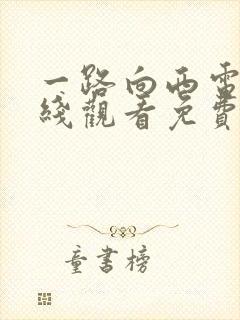 一路向西电
线观看免费
童书榜